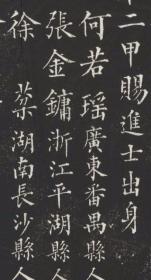 十二甲賜進士出身
何若瑤廣東番禺縣人
張金鏞浙江平湖縣人
徐棻湖南長沙縣人